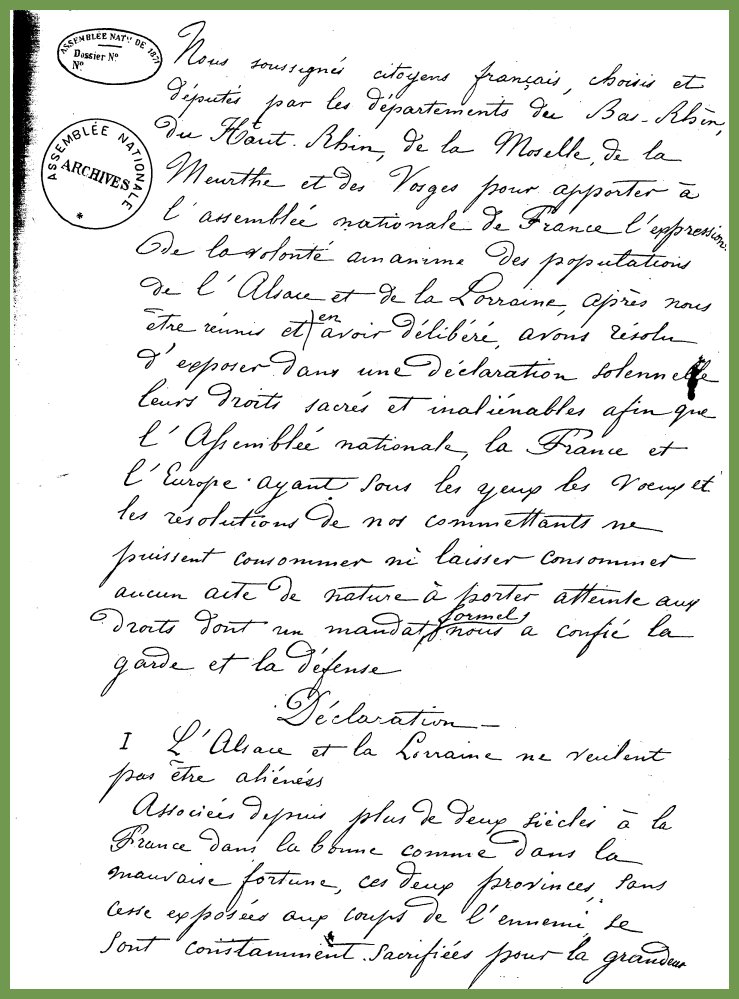 ASSEMBLÉE NAT^le DE 1871
Dossier N°
N°
ASSEMBLÉE NATIONALE
ARCHIVES
Nous soussignés citoyens français, choisis et
députés par les départements du Bas-Rhin,
du Haut-Rhin, de la Moselle, de la
Meurthe et des Vosges pour apporter à
l'assemblée nationale de France l'expression
de la volonté unanime des populations
de l'Alsace et de la Lorraine, après nous
être réunis et en avoir délibéré, avons résolu
d'exposer dans une déclaration solennelle
leurs droits sacrés et inaliénables afin que
l'Assemblée nationale, la France et
l'Europe ayant sous les yeux les voeux et
les résolutions de nos commettants ne
puissent consommer ni laisser consommer
aucun acte de nature à porter atteinte aux
droits dont un mandat formel nous a confié la
garde et la défense
Déclaration
I L'Alsace et la Lorraine ne veulent
pas être aliénées
Associées depuis plus de deux siècles à la
France dans la bonne comme dans la
mauvaise fortune, ces deux provinces, sans
cesse exposées aux coups de l'ennemi, se
sont constamment sacrifiées pour la grandeur